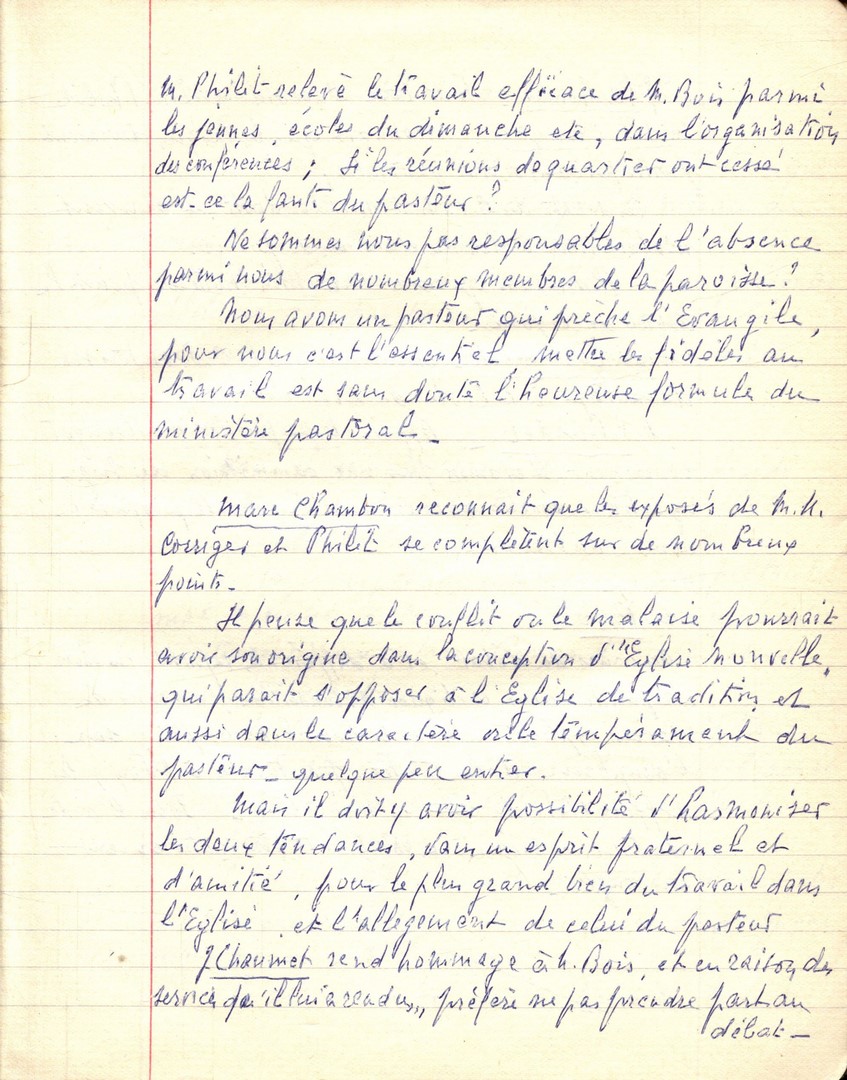 M. Philit relevè le travail efficace de M. Bois parmi
les jeunes, écoles du dimanche etc, dans l'organisation
des conférences ; Si les réunions de quartier ont cessé
est-ce la faute du pasteur ?
Ne sommes nous pas responsables de l'absence
parmi nous de nombreux membres de la paroisse ?
Nous avons un pasteur qui prèche l'Evangile,
pour nous c'est l'essentiel, mettre les fidèles au
travail est sans doute l'heureuse formule du
ministère pastoral _
Marc Chambon reconnait que les exposés de M.M.
et Philit se complètent sur de nombreux
points _
Il pense que le conflit ou le malaise pourrait
avoir son origine dans la conception d'"Eglise nouvelle"
qui parait s'opposer à l'Eglise de tradition, et
aussi dans le caractère ou le tempérament du
pasteur _ quelque peu entier.
Mais il doit y avoir possibilité d'harmoniser
les deux tendances, dans un esprit fraternel et
d'amitié, pour le plus grand bien du travail dans
l'Eglise, et l'allegement de celui du pasteur
J Chaumet rend hommage à M. Bois, et en raison des
services qu'il lui a rendus, préfère ne pas prendre part au
débat _